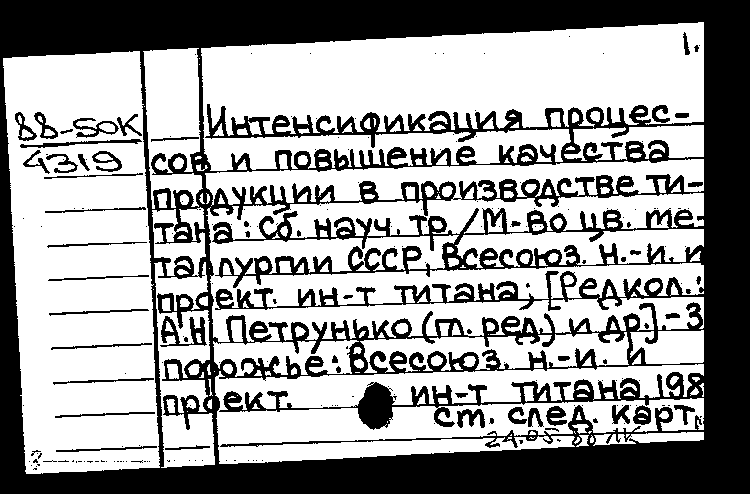 1.
88-50К
4319
Интенсификация процес-
сов и повышение качества
продукции в производстве ти-
тана : Сб. науч. тр. / М-во цв. ме-
таллургии СССР, Всесоюз. н.-и. и
проект. ин-т титана; [Редкол.:
А.Н. Петрунько (гл. ред.) и др.].- З
порожье : Всесоюз. н.-и. и
проект. ин-т титана, 198
ст. след. карт.
24.05.88 ЛК